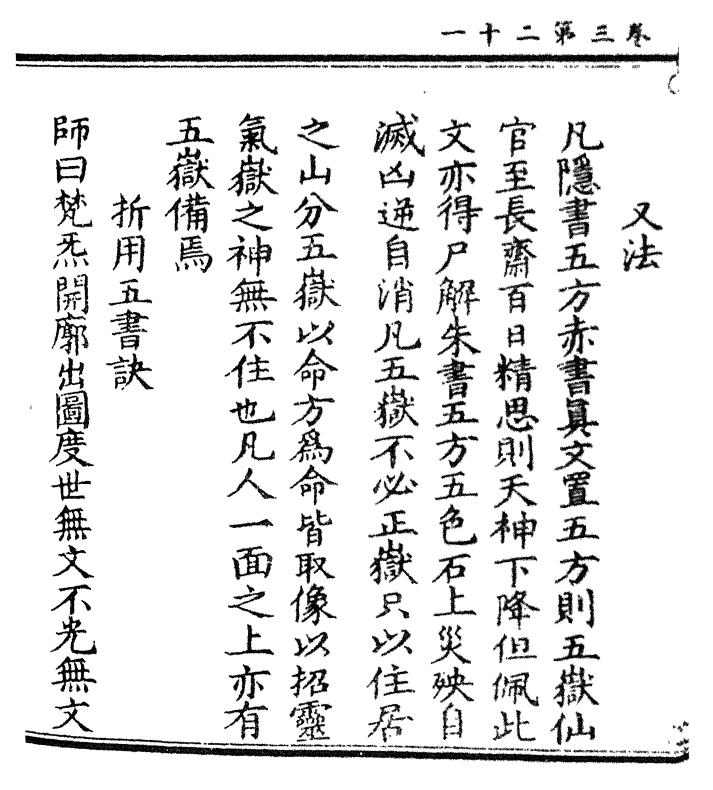 卷三第二十一
又法
凡隱書五方赤書眞文置五方則五嶽仙
官至長齋百日精思則天神下降但佩此
文亦得尸解朱書五方五色石上災殃自
滅凶逆自消凡五嶽不必正嶽只以住居
之山分五嶽以命方爲命皆取像以招靈
氣嶽之神無不住也凡人一面之上亦有
五嶽備焉
折用五書訣
師曰梵炁開廓出圖度世無文不光無文